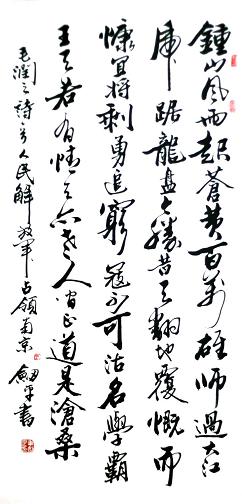 鍾山風雨起蒼黄百萬雄師過大江
虎踞龍盘今勝昔天翻地覆慨而
慷宜将剩勇追窮寇不可沽名學霸
王天若有情天亦老人间正道是滄桑
毛潤之詩人民解放軍占領南京 劍平書